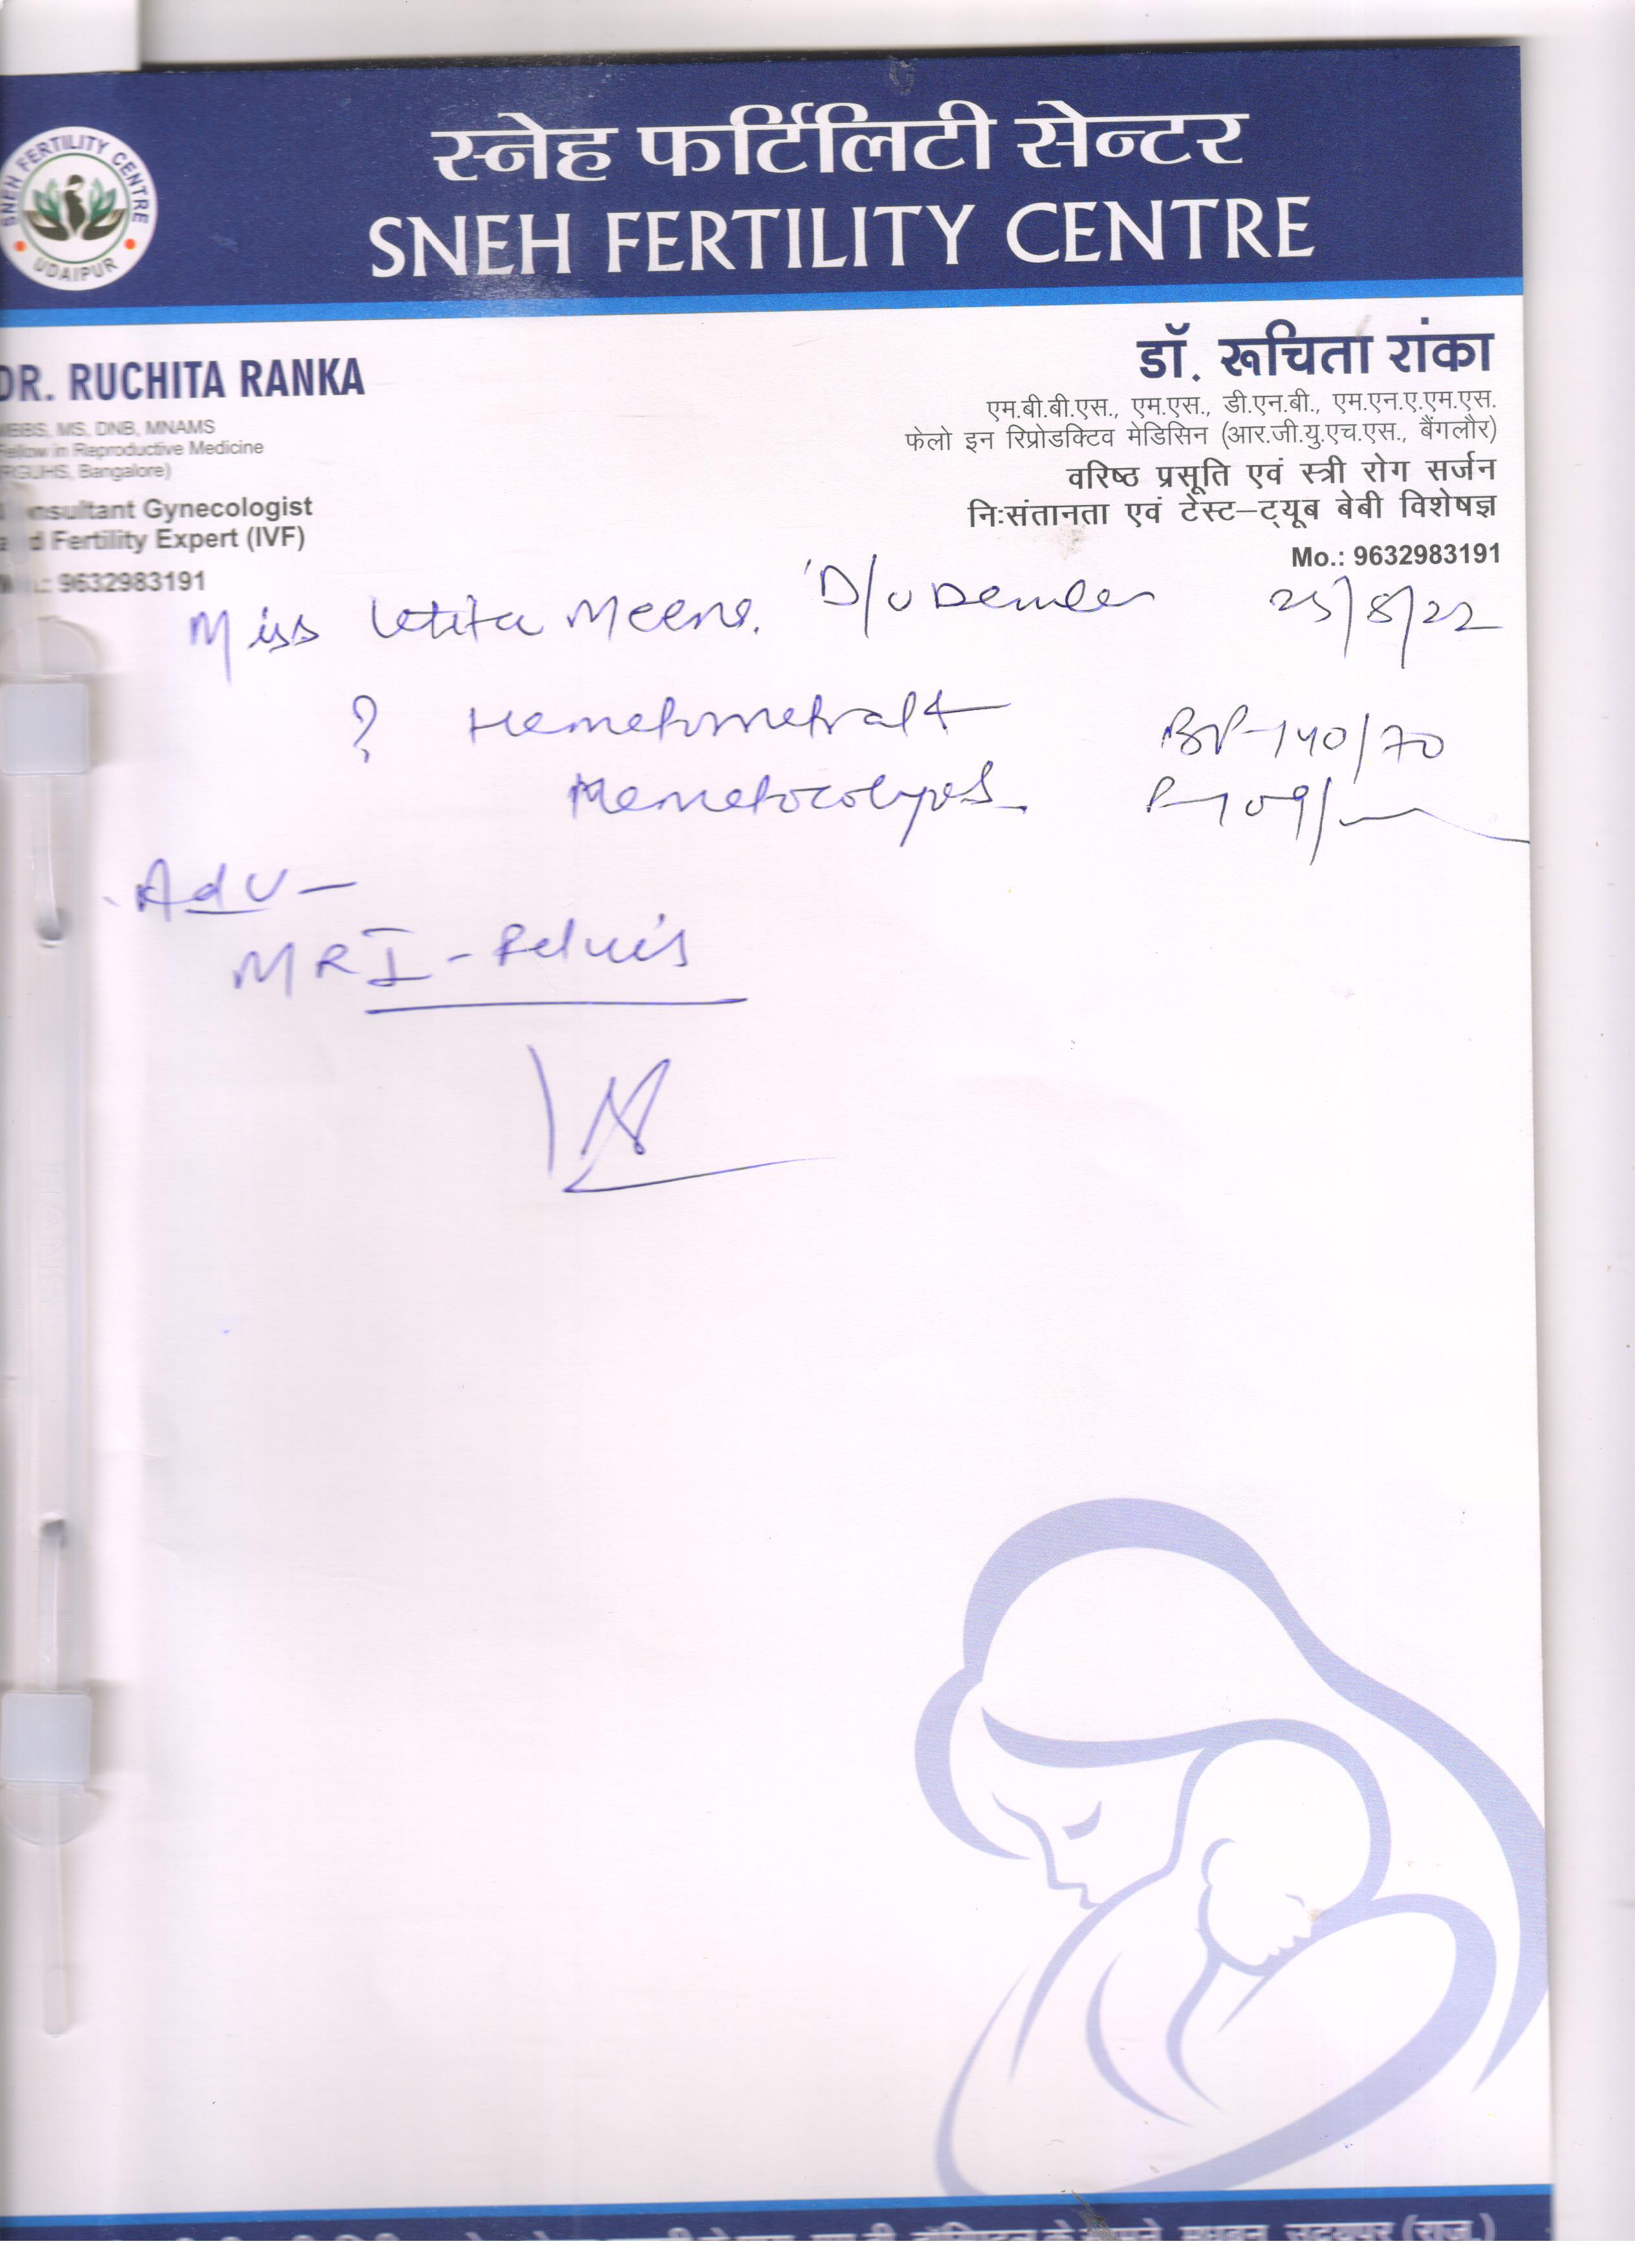 स्नेह फर्टिलिटी सेन्टर
SNEH FERTILITY CENTRE
SNEH FERTILITY CENTRE
UDAIPUR
DR. RUCHITA RANKA
MBBS, MS, DNB, MNAMS
Fellow in Reproductive Medicine
(RGUHS, Bangalore)
Consultant Gynecologist
and Fertility Expert (IVF)
Mo.: 9632983191
डॉ. रूचिता रांका
एम.बी.बी.एस., एम.एस., डी.एन.बी., एम.एन.ए.एम.एस.
फेलो इन रिप्रोडक्टिव मेडिसिन (आर.जी.यु.एच.एस., बैंगलौर)
वरिष्ठ प्रसूति एवं स्त्री रोग सर्जन
निःसंतानता एवं टेस्ट–ट्यूब बेबी विशेषज्ञ
Mo.: 9632983191
Miss Meena. D/o 25/8/22
? Hematometra BP-140/70
Hematocolpos P-109/
Adv-
MRI-Pelvis
उदयपुर (राज.)